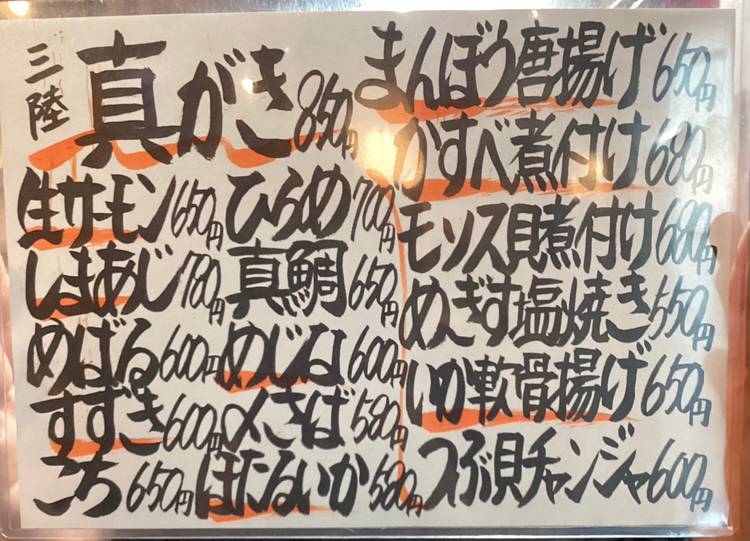 三陸 真がき 850円
生サーモン 650円 ひらめ 700円
しまあじ 780円 真鯛 650円
めばる 600円 めじな 600円
すずき 600円 〆さば 580円
こち 650円 ほたるいか 580円
まんぼう唐揚げ 650円
かすべ煮付け 680円
モソス貝煮付け 680円
めぎす塩焼き 550円
いか軟骨揚げ 650円
つぶ貝チャンジャ 600円